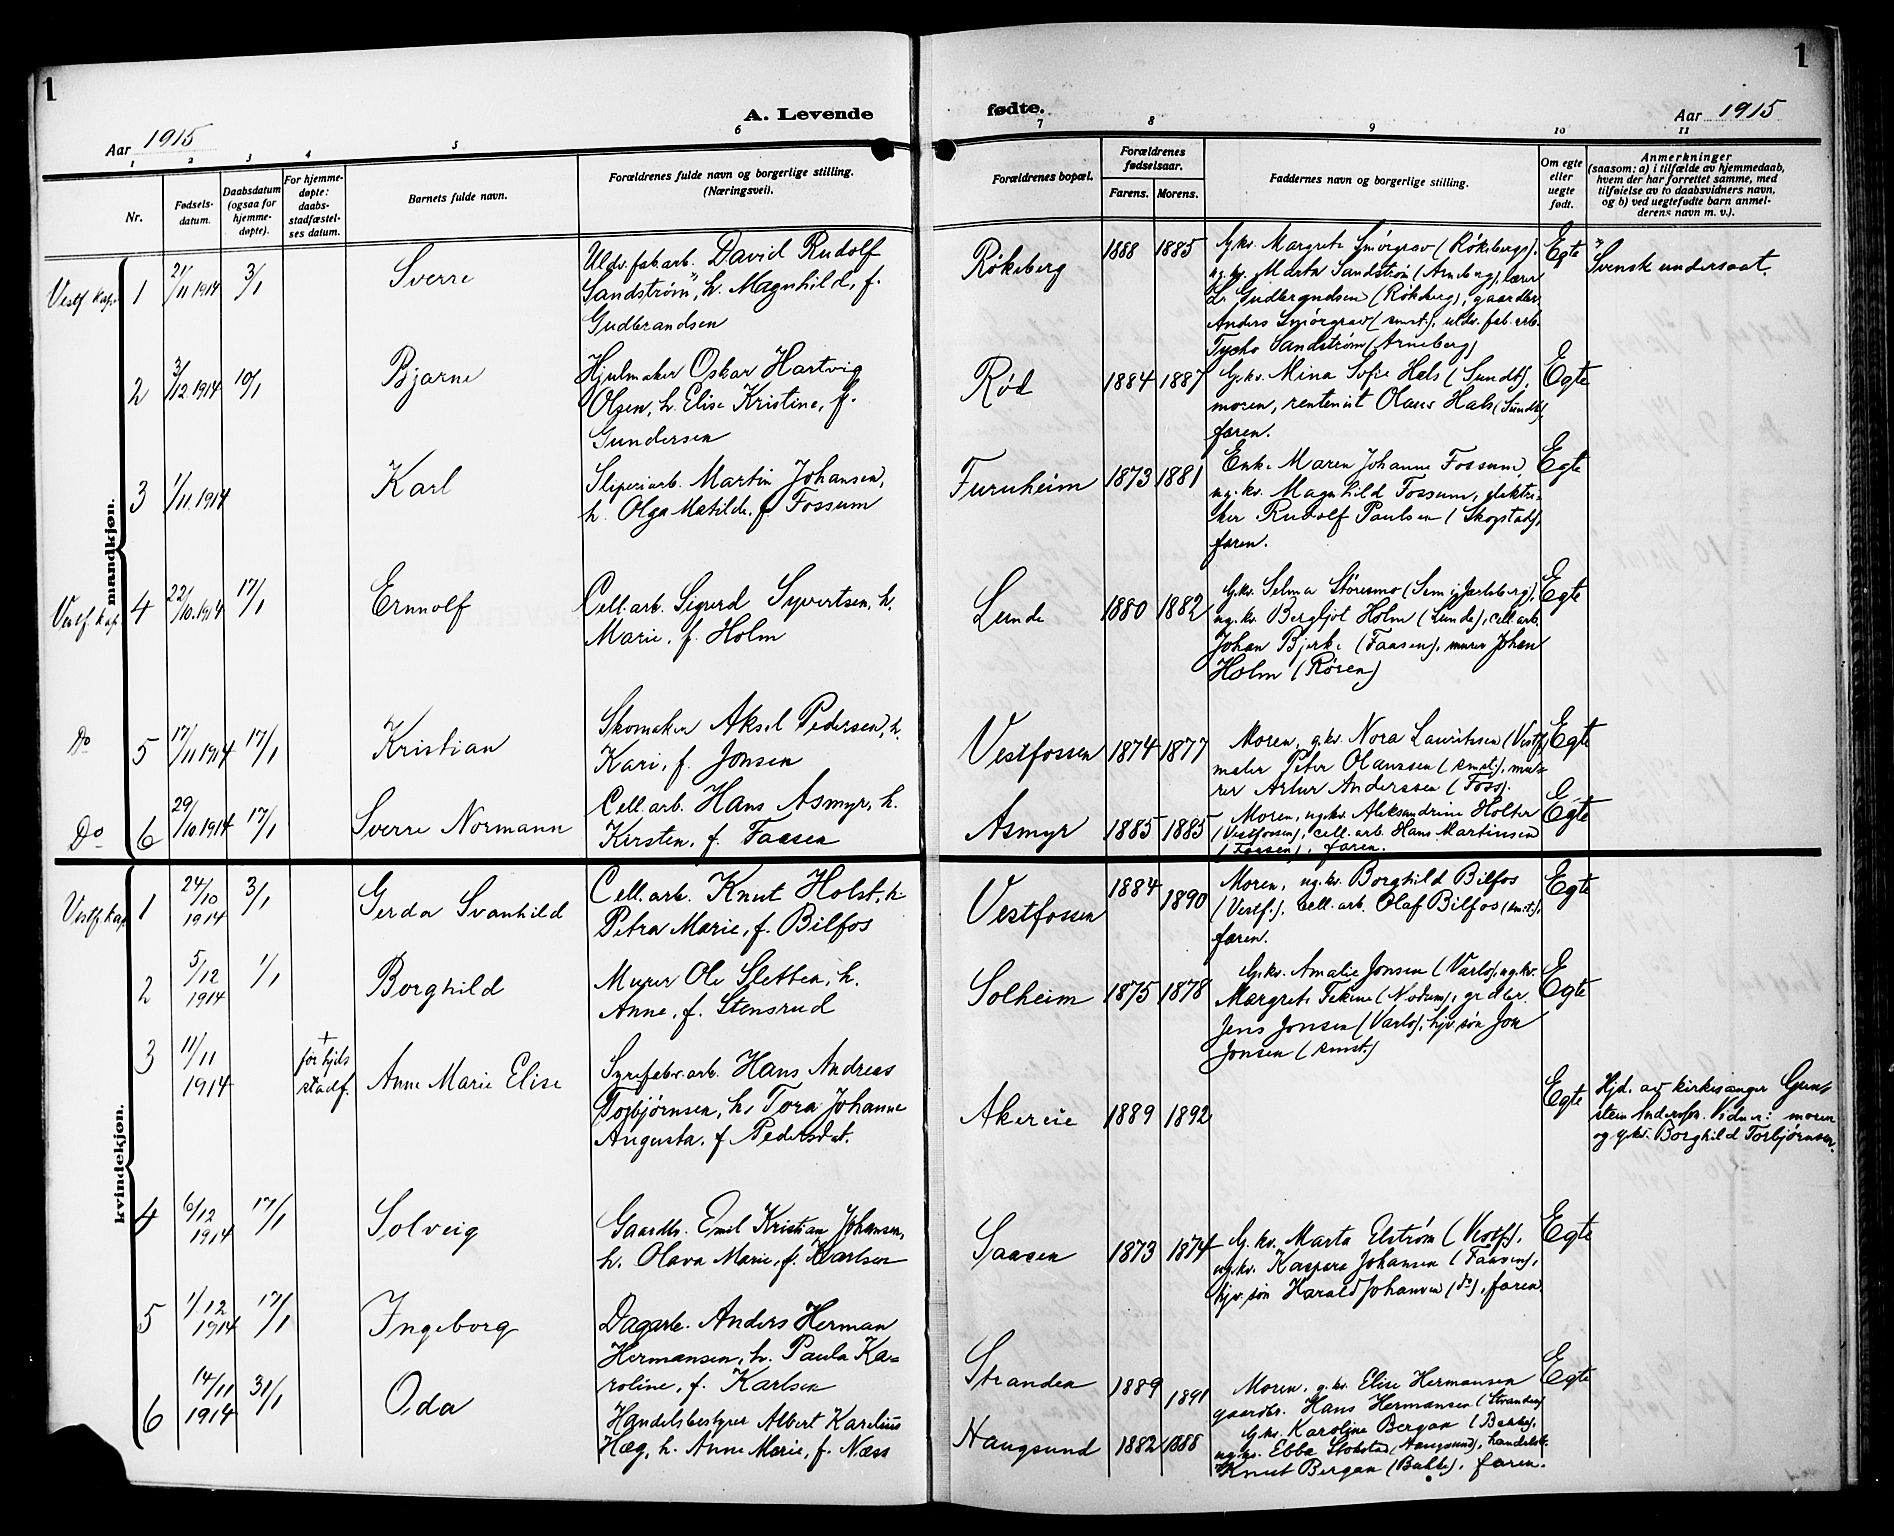 1
Aar 1915
A. Levende
fødte.
Aar 1915
1
1 2 3 4 5 6 7 8 9 10 11
Nr.
Fødsels-
datum.
Daabsdatum
(ogsaa for
hjemme-
døpte).
For hjemme-
døpte:
daabs-
stadfæstel-
ses datum.
Barnets fulde navn.
Forældrenes fulde navn og borgerlige stilling.
(Næringsveil).
Forældrenes bopæl.
Forældrenes
fødselsaar.
Farens. Morens.
Faddernes navn og borgerlige stilling.
Om egte
eller
uegte
født.
Anmerkninger
(saasom: a) i tilfælde av hjemmedaab,
hvem der har forrettet samme, med
tilføielse av to daabsvidners navn,
og b) ved uegtefødte barn anmel-
derens navn m. v.).
mandkjøn.
Vestf. kap. 1 21/11 1914 3/1 Sverre
Uldv.fab.arb. David Rudolf
Sandstrøm, h. Magnhild, f.
Gudbrandsen
Røkeberg 1888 1885
Gkv. Margrete Smørgrav (Røkeberg),
ug.kv. Marta Sandstrøm (Arneberg), lærer
Gudbrandsen (Røkeberg), gaardbr.
Anders Smørgrav (smst.), uldv. fab. arb.
Tycho Sandstrøm (Arneberg)
Egte
Svensk undersaat.
2 3/12 1914 10/1 Bjarne
Hjulmaker Oskar Hartvig
Olsen, h. Elise Kristine, f.
Gundersen
Rød 1884 1887
G.kv. Mina Sofie Hals (Sundt),
moren, rentenist Olaus Hals (Sundt),
faren.
Egte
3 1/11 1914 Karl
Sliperiarb. Martin Johansen,
h. Olga Matilde, f. Fossum
Furuheim 1873 1881
Enke Maren Johanne Fossum
ug.kv. Magnhild Fossum, elektri-
ker Rudolf Paulsen (Skogstad),
faren.
Egte
Vestf. kap. 4 22/10 1914 17/1 Ernnolf
Cell.arb. Sigurd Syvertsen, h.
Marie, f. Holm
Lunde 1880 1882
Gkv. Selma Støresmo (Sem i Jarlsberg),
ug.kv. Bergljot Holm (Lunde), cell.arb.
Johan Bjerke (Faasen), murer Johan
Holm (Røren)
Egte
Do 5 17/11 1914 17/1 Kristian
Skomaker Aksel Pedersen, h.
Kari, f. Jonsen
Vestfossen 1874 1877
Moren, g.kv. Nora Lauritssen (Vestf.)
maler Peter Olanssen (smst.), mu-
rer Artur Anderssen (Foss).
Egte
Do 6 29/10 1914 17/1 Sverre Normann
Cell.arb. Hans Asmyr, h.
Kirsten, f. Faasen
Asmyr 1885 1885
Moren, ug.kv. Aleksandrine Holter
(Vestfossen), cell. arb. Hans Martinsen
(Faasen), faren.
Egte
kvindekjøn.
Vestf.kap. 1 24/10 1914 3/1 Gerda Svanhild
Cell.arb. Knut Holst, h.
Petra Marie, f. Bilfos
Vestfossen 1884 1890
Moren, ug.kv. Borghild Bilfos
(Vestf.), cell. arb. Olaf Bilfos (smst.),
faren.
Egte
2 5/12 1914 1/1 Borghild
Murer Ole Sletten, h.
Anne, f. Stensrud
Solheim 1875 1878
G.kv. Amalie Jonsen (Varlo), ug.kv.
Margrete Tekene (Nodum), grdbr.
Jens Jonsen (Varlo), hjv. søn Jon
Jonsen (smst.)
Egte
3 11/11 1914
+
før hjds
stadf.
Anne Marie Elise
Syrefabr.arb. Hans Andreas
Torbjørnsen, h. Tora Johanne
Augusta, f. Pedersdat.
Akereie 1889 1892
Egte
Hjd. av kirkesanger Gun-
stein Anderssen. Vidner: moren
og g.kv. Borghild Torbjørnsen.
4 6/12 1914 17/1 Solveig
Gaardbr. Emil Kristian Johansen,
h. Olava Marie, f. Karlsen
Saasen 1873 1874
G. kv. Marta Elstrøm (Vestf.),
ug.kv. Kaspara Johansen (Faasen),
hjv. søn Harald Johansen (do), faren.
Egte
5 1/12 1914 17/1 Ingeborg
Dagarb. Anders Herman
Hermansen, h. Paula Ka-
roline, f. Karlsen
Stranden 1889 1891
Moren, g.kv. Elise Hermansen
gaardbr. Hans Hermansen (Stranden)
Egte
6 14/11 1914 31/1 Oda
Handelsbestyrer Albert Karelius
Hæg, h. Anne Marie, f. Næss
Haugsund 1882 1888
Gkv. Karoline Bergan (Bakke),
ug.kv. Ebba Stokstad (Haugsund), handelsb.
Knut Bergan (Bakke), faren.